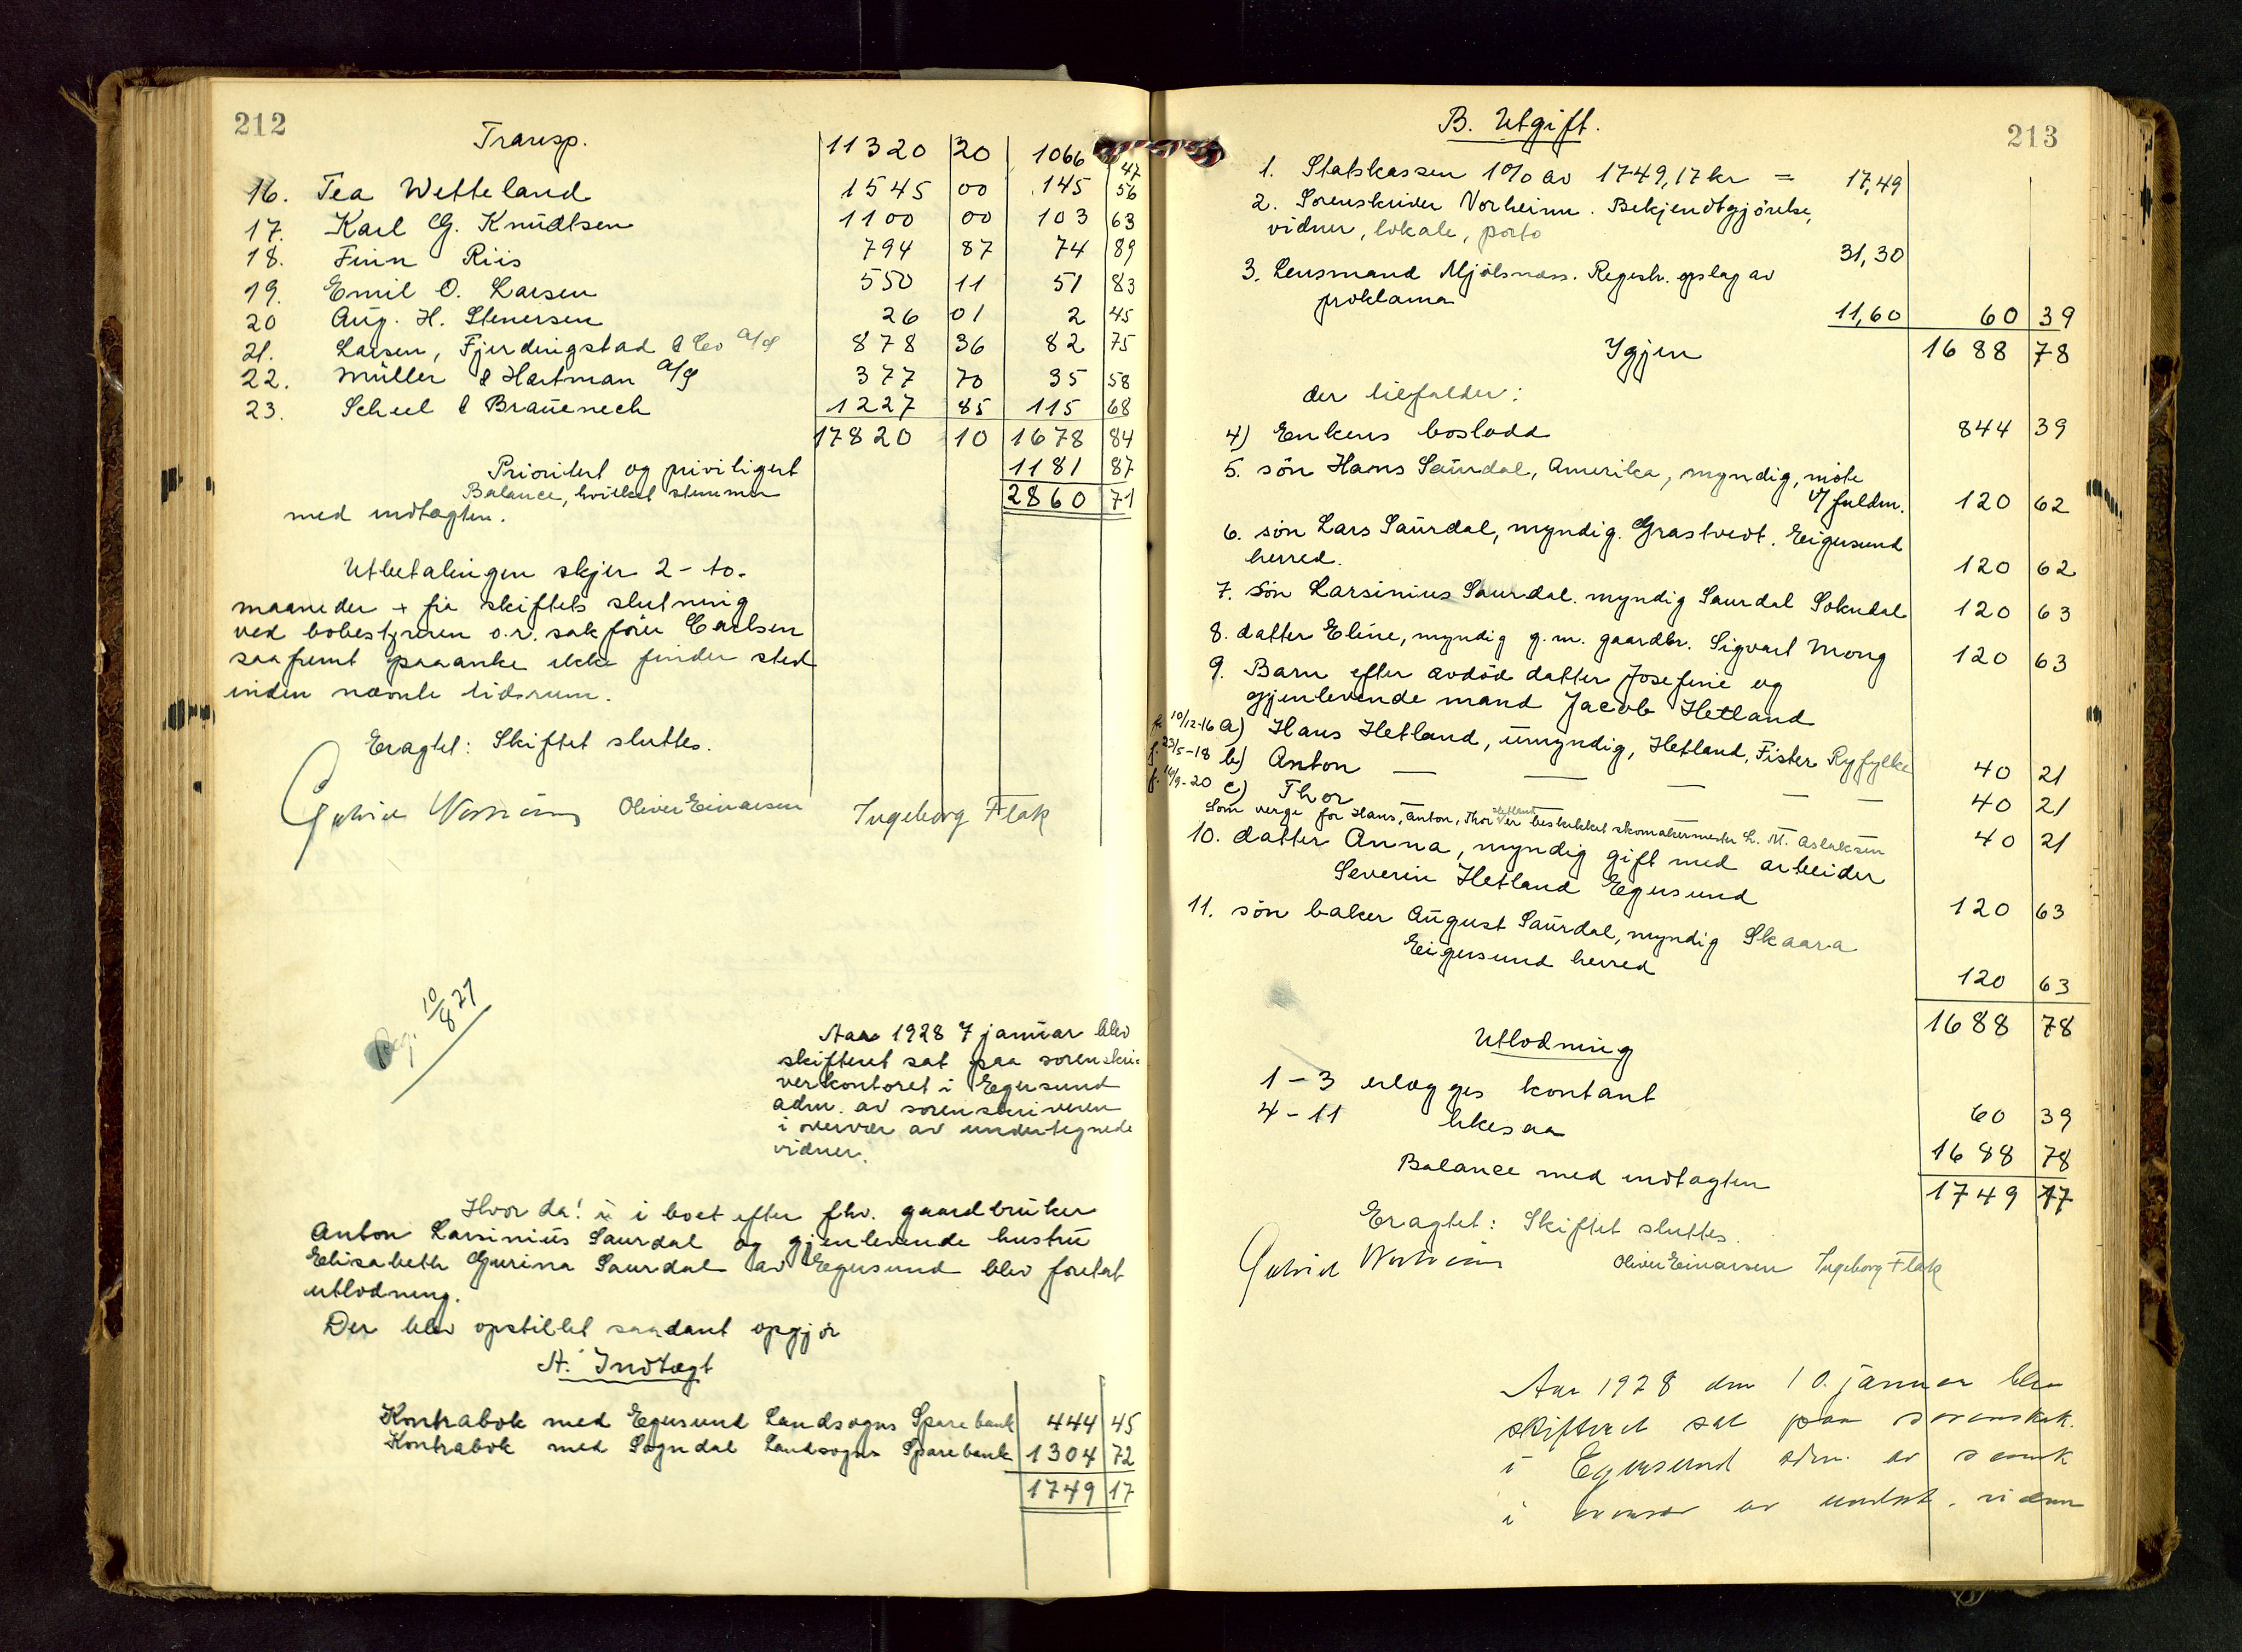 212
Transp. 11320 20 1066 47
16. Tea Wetteland 1545 00 145 56
17. Karl G. Knudtsen 1100 00 103 63
18. Finn Riis 794 87 74 89
19. Emil O. Larsen 550 11 51 83
20 Aug. H. Stenersen 26 01 2 45
21. Larsen, Fjerdingstad & Co A/S 878 36 82 75
22. Müller & Hartman A/S 377 70 35 58
23. Scheel & Brauenech 1227 85 115 68
17820 10 1678 84
Prioritert og priviligert 1181 87
Balance, hvilket stemmer 2860 71
med indtægten.
Utbetalingen skjer 2 - to -
maaneder + fra skiftets slutning
ved bobestyreren o.r. sakfører Carlsen
saafremt paaanke ikke finder sted
inden nævnte tidsrum.
Eragtet: Skiftet sluttes.
Oliver Einarsen Ingeborg Flak
10/8 27
Aar 1928 7 januar blev
skifteret sat paa sorenskri-
verkontoret i Egersund
adm. av sorenskriveren
i overvær av undertegnede
vidner.
Hvor da! i boet efter fhv. gaardbruker
Anton Larsinius Saurdal og gjenlevende hustru
Elisabeth Gurina Saurdal av Egersund blev foretat
utlodning.
Der blev opstillet saadant opgjør
A. Indtægt
Kontrabok med Egersund Landsogns Sparebank 444 45
Kontrabok med Sogndal Landsogns Sparebank 1304 72
1749 17
213
B. Utgift.
1. Statskassen 1% av 1749,17 kr = 17,49
2. Sorenskriver Vorheim. Bekjendtgjörelse,
vidner, lokale, porto 31,30
3. Lensmand Mjölsnæss. Regestr. opslag av
proklama 11,60 60 39
Igjen 1688 78
der tilfalder:
4) Enkens boslodd 844 39
5. sön Hans Saurdal, Amerika, myndig, möte
v/ fuldm. 120 62
6. sön Lars Saurdal, myndig. Grastvedt. Eigersund
herred. 120 62
7. Sön Larsinius Saurdal. myndig Saurdal Sokndal 120 63
8. datter Eline, myndig g.m. gaardbr. Sigvart Mong 120 63
9. Barn efter avdöd datter Josefine og
gjenlevende mand Jacob Hetland
f. 10/12-16 a) Hans Hetland, umyndig, Hetland, Fister Ryfylke 40 21
f. 23/5-18 b) Anton — — — — 40 21
f. 16/9-20 c) Thor — — — — 40 21
Som verge for Hans, Anton, Thor Hetland er beskikket skomakermester L. M. Aslaksen
10. datter Anna, myndig gift med arbeider
Severin Hetland Egersund 120 63
11. sön baker August Saurdal, myndig Skaara
Eigersund herred 120 63
1688 78
Utlodning
1 - 3 erlægges kontant 60 39
4 - 11 likesaa 1688 78
Balance med indtægten 1749 17
Eragtet: Skiftet sluttes.
Oliver Einarsen Ingeborg Flak
Aar 1928 den 10. januar blev
skifteret sat paa sorenskrk.
i Egersund adm. av sorensk
i overvær av undert. vidner